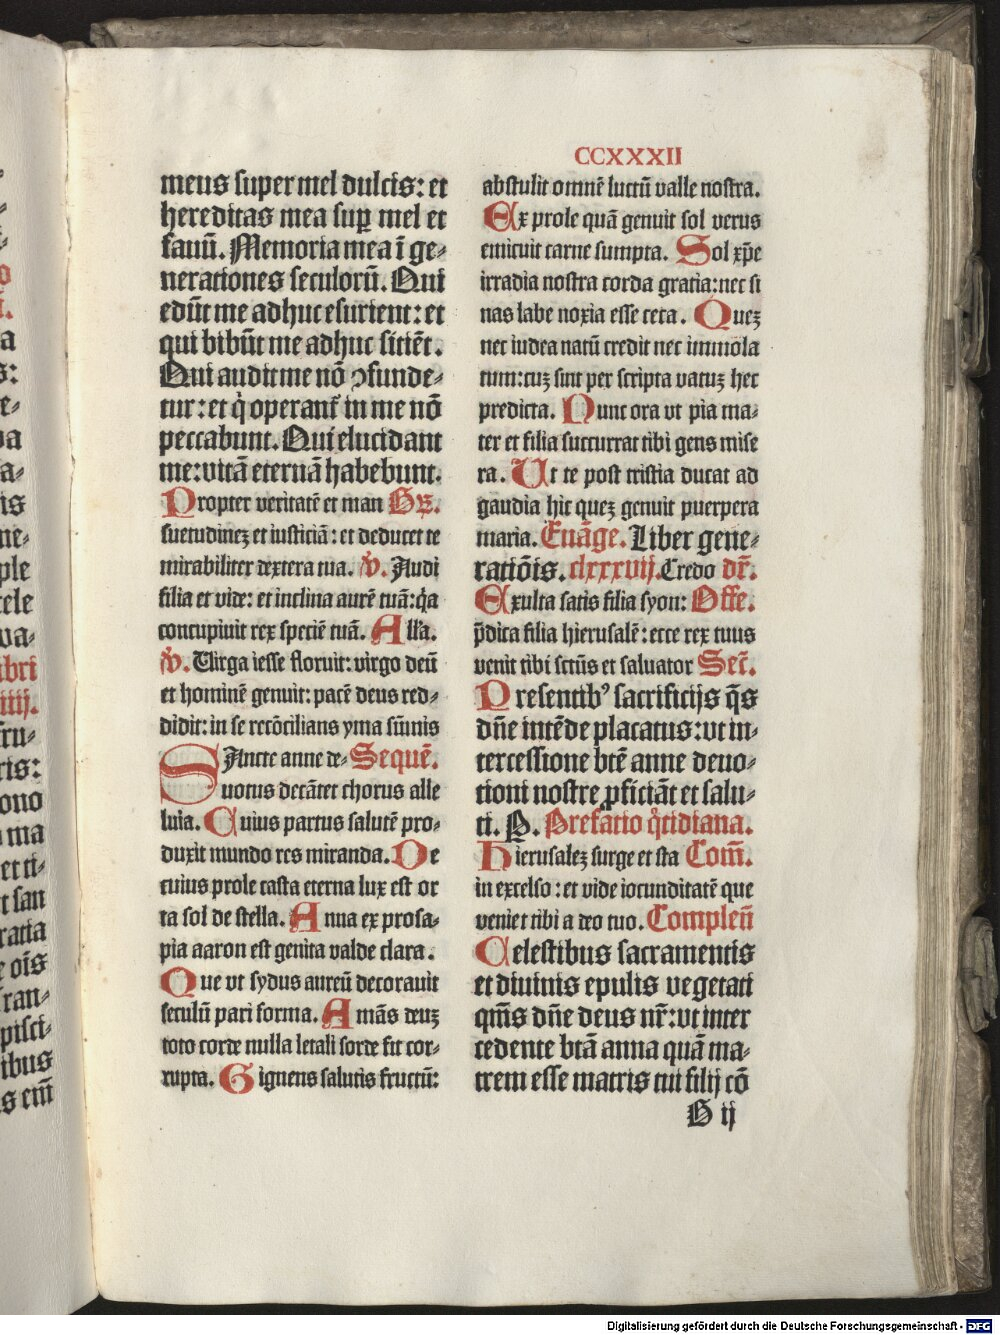 CCXXXII
meus super mel dulcis: et
hereditas mea suꝑ mel et
fauū. Memoria mea ī ge⸗
nerationes seculorū. Qui
edūt me adhuc esurient: et
qui bibūt me adhuc sitiēt.
Qui audit me nō ꝯfunde⸗
tur: et q̇ operant᷑ in me nō
peccabunt. Qui elucidant
me: vitā eternā habebunt.
Propter veritatē et man Gr̄.
suetudinez et iusticiā: et deducet te
mirabiliter dextera tua. v̇. Audi
filia et vide: et inclina aurē tuā: q̇a
concupiuit rex speciē tuā. All'a.
v̇. Virga iesse floruit: virgo deū
et hominē genuit: pacē deus red⸗
didit: in se recōcilians yma sūmis
SAncte anne de⸗ Sequē.
uotus decātet chorus alle
luia. Cuius partus salutē pro⸗
duxit mundo res miranda. De
cuius prole casta eterna lux est or
ta sol de stella. Anna ex prosa⸗
pia aaron est genita valde clara.
Que vt sydus aureū decorauit
seculū pari forma. Amās deuz
toto corde nulla letali sorde fit cor⸗
rupta. Gignens salutis fructū:
abstulit omnē luctū valle nostra.
Ex prole quā genuit sol verus
emicuit carne sumpta. Sol xp̄e
irradia nostra corda gratia: nec si
nas labe noxia esse ceca. Quez
nec iudea natū credit nec immola
tum: cuz sint per scripta vatuz hec
predicta. Nunc ora vt pia ma⸗
ter et filia succurrat tibi gens mise
ra. Ut te post tristia ducat ad
gaudia hic quez genuit puerpera
maria. Euāge. Liber gene⸗
ratiōis. clxxxvij. Credo dr̄.
Exulta satis filia syon: Offe.
p̄dica filia hierusalē: ecce rex tuus
venit tibi sctūs et saluator Secr̄.
Presentibꝰ sacrificijs q̄s
dn̄e intēde placatus: vt in⸗
tercessione btē anne deuo⸗
tioni nostre ꝓficiāt et salu⸗
ti. P. Prefatio q̊tidiana.
Hierusalez surge et sta Com̄.
in excelso: et vide iocunditatē que
veniet tibi a deo tuo. Complen̄
Celestibus sacramentis
et diuinis epulis vegetati
qm̄s dn̄e deus nr̄: vt inter
cedente btā anna quā ma⸗
trem esse matris tui filij cō
G ij
Digitalisierung gefördert durch die Deutsche Forschungsgemeinschaft - DFG